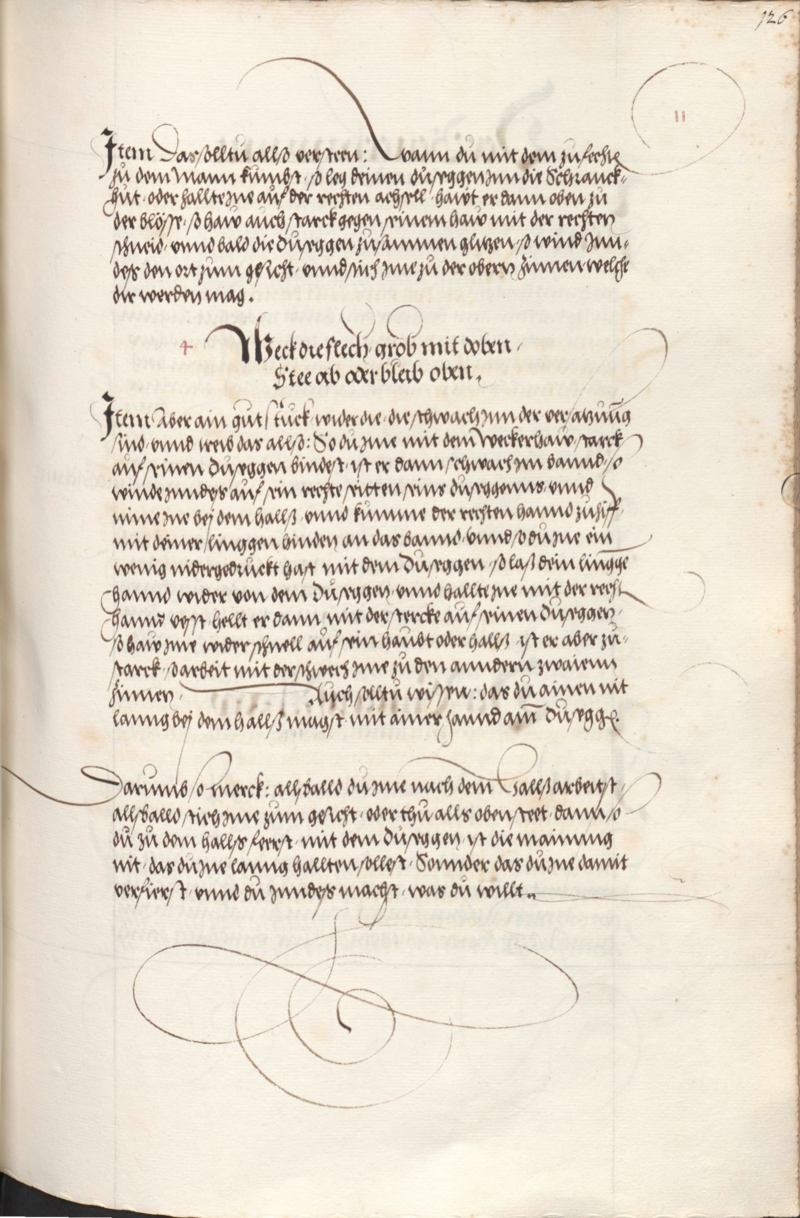 126
11
Item Das solltu allso versteen: Wann du mit dem zufechten
zu dem Mann kumbst, so leg deinen dusеggen Inn die Schranck-
hut, oder hallt Ine auf der rechten achsell, hawt er dann oben zu
der blösse, so haw auch starck gegen seinem haw mit der rechten
schneid, vnnd bald die duseggen zusammen glitzen, so wind Inn-
des den ort zum gesicht, vnnd stich Ine zu der obern Zinnen welche
dir werden mag.
+ Weck die flech, grob mit doben,
Stee ab oder bleib oben.
Item Aber ain gut stuck, wider die, die schwach Inn der versatzung
sind, vnnd treib das allso: So du Ine mit dem Weckerhaw starck
auf seinen duseggen bindest, ist er dann schwach Im bannd, so
winde Inndes auf sein rechte seitten seins duseggenns, vnnd
nime Ine bei dem hallß, vnnd kumme der rechten hannd zuhilf
mit deiner linggen hinden an das bannd, vnnd so du Ine ein
wenig nidergedruckt hast mit dem duseggen, so laß dein lingge
hannd wider von dem duseggen, vnnd hallt Ine mit der recht
hannd vesst, hellt er dann mit der stercke auf seinen duseggen,
so haw Ine wider schnell auf sein haubt oder hallß, ist er aber zu-
starck, so arbeit mit der schwech Ine zu den anndern zwaienn
Zinnen, Auch solltu wissen: das du ainen nit
lanng bei dem hallß magst mit ainer hannd am duseggen.
Darumb so merck: allßballd du Ine nach dem Hallß arbeitst,
allßballd stich Ine zum gesicht, oder thu alls oben steet, dann so
du zu dem hallß ferst, mit dem duseggen, ist die mainung
nit, das du Ine lanng hallten sollest, Sonnder das du Ine damit
verfierst, vnnd du Inndes machst, was du willt.